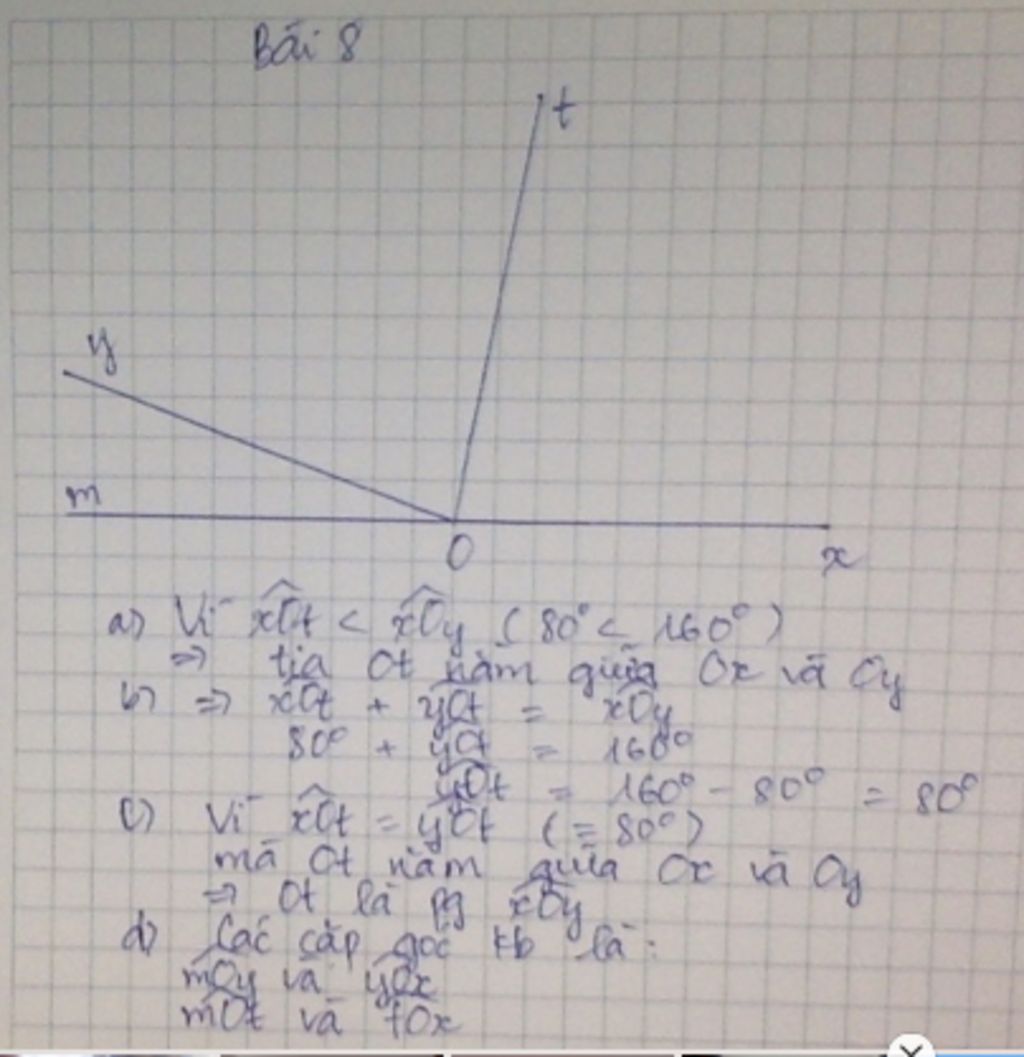 Bài 8
t
y
m
O
x
a) Vì xOt < xOy (80° < 160°)
=> tia Ot nằm giữa Ox và Oy
b) => xOt + yOt = xOy
80° + yOt = 160°
yOt = 160° - 80° = 80°
c) Vì xOt = yOt (= 80°)
mà Ot nằm giữa Ox và Oy
=> Ot là pg xOy
d) Các cặp góc kb là:
mOy và yOx
mOt và tOx